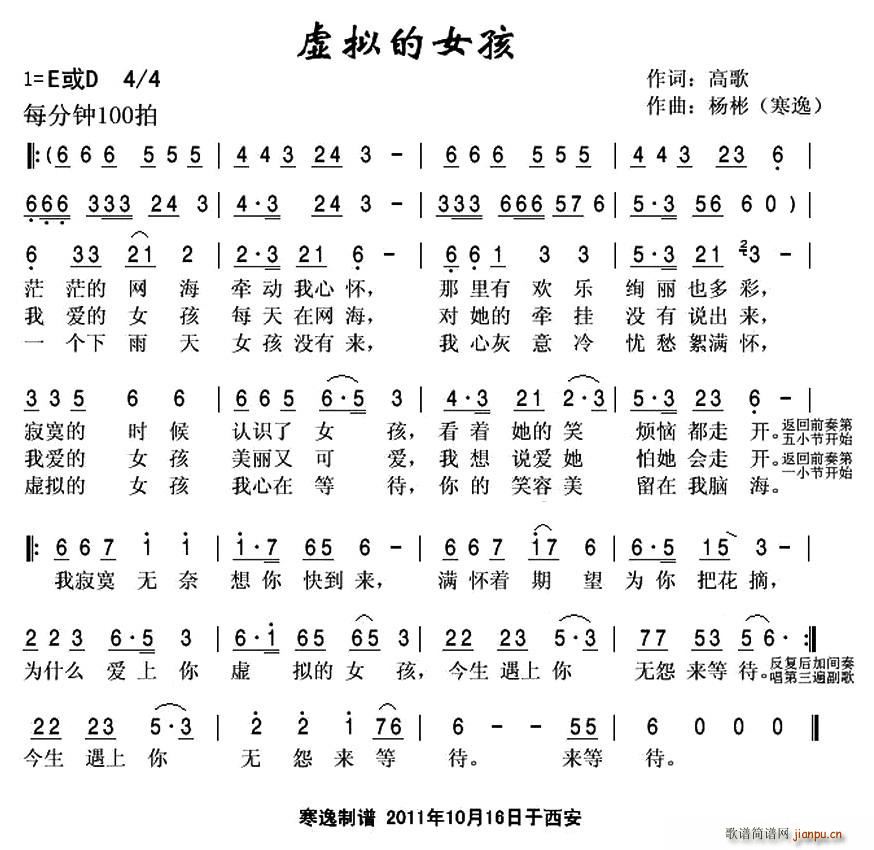 虚拟的女孩
1=E或D 4/4
作词：高歌
每分钟100拍
作曲：杨彬（寒逸）
‖:( 6 6 6 5 5 5 | 4 4 3 24 3 - | 6 6 6 5 5 5 | 4 4 3 23 6 |
666 333 24 3 | 4·3 24 3 - | 333 666 57 6 | 5·3 56 6 0 ) |
6 33 21 2 | 2·3 21 6 - | 6 6 1 3 3 | 5·3 21 2 3 - |
茫 茫的 网 海 牵动我心 怀， 那里有 欢 乐 绚丽也多 彩，
我 爱的 女 孩 每天在网 海， 对她的 牵 挂 没有说出 来，
一 个下 雨 天 女孩没有 来， 我心灰 意 冷 忧愁絮满 怀，
3 3 5 6 6 | 6 6 5 6·5 3 | 4·3 21 2·3 | 5·3 23 6 - |
寂寞的 时 候 认识了 女 孩，看着 她的 笑 烦恼 都走 开。返回前奏第五小节开始
我爱的 女 孩 美丽又 可 爱，我想 说爱 她 怕她 会走 开。返回前奏第一小节开始
虚拟的 女 孩 我心在 等 待，你的 笑容 美 留在 我脑 海。
‖: 6 6 7 1 1 | 1·7 65 6 - | 6 6 7 17 6 | 6·5 15 3 - |
我寂寞 无 奈 想你 快到 来， 满怀着 期 望 为你 把花 摘，
2 2 3 6·5 3 | 6·1 65 65 3 | 22 23 5·3 | 77 53 5 6· :‖
为什么 爱上 你 虚 拟的 女 孩，今生 遇上 你 无怨 来等 待。反复后加间奏唱第三遍副歌
22 23 5·3 | 2 2 1 76 | 6 - - 55 | 6 0 0 0 ‖
今生 遇上 你 无 怨 来 等 待。 来等 待。
寒逸制谱 2011年10月16日于西安
歌谱简谱网 jianpu.cn